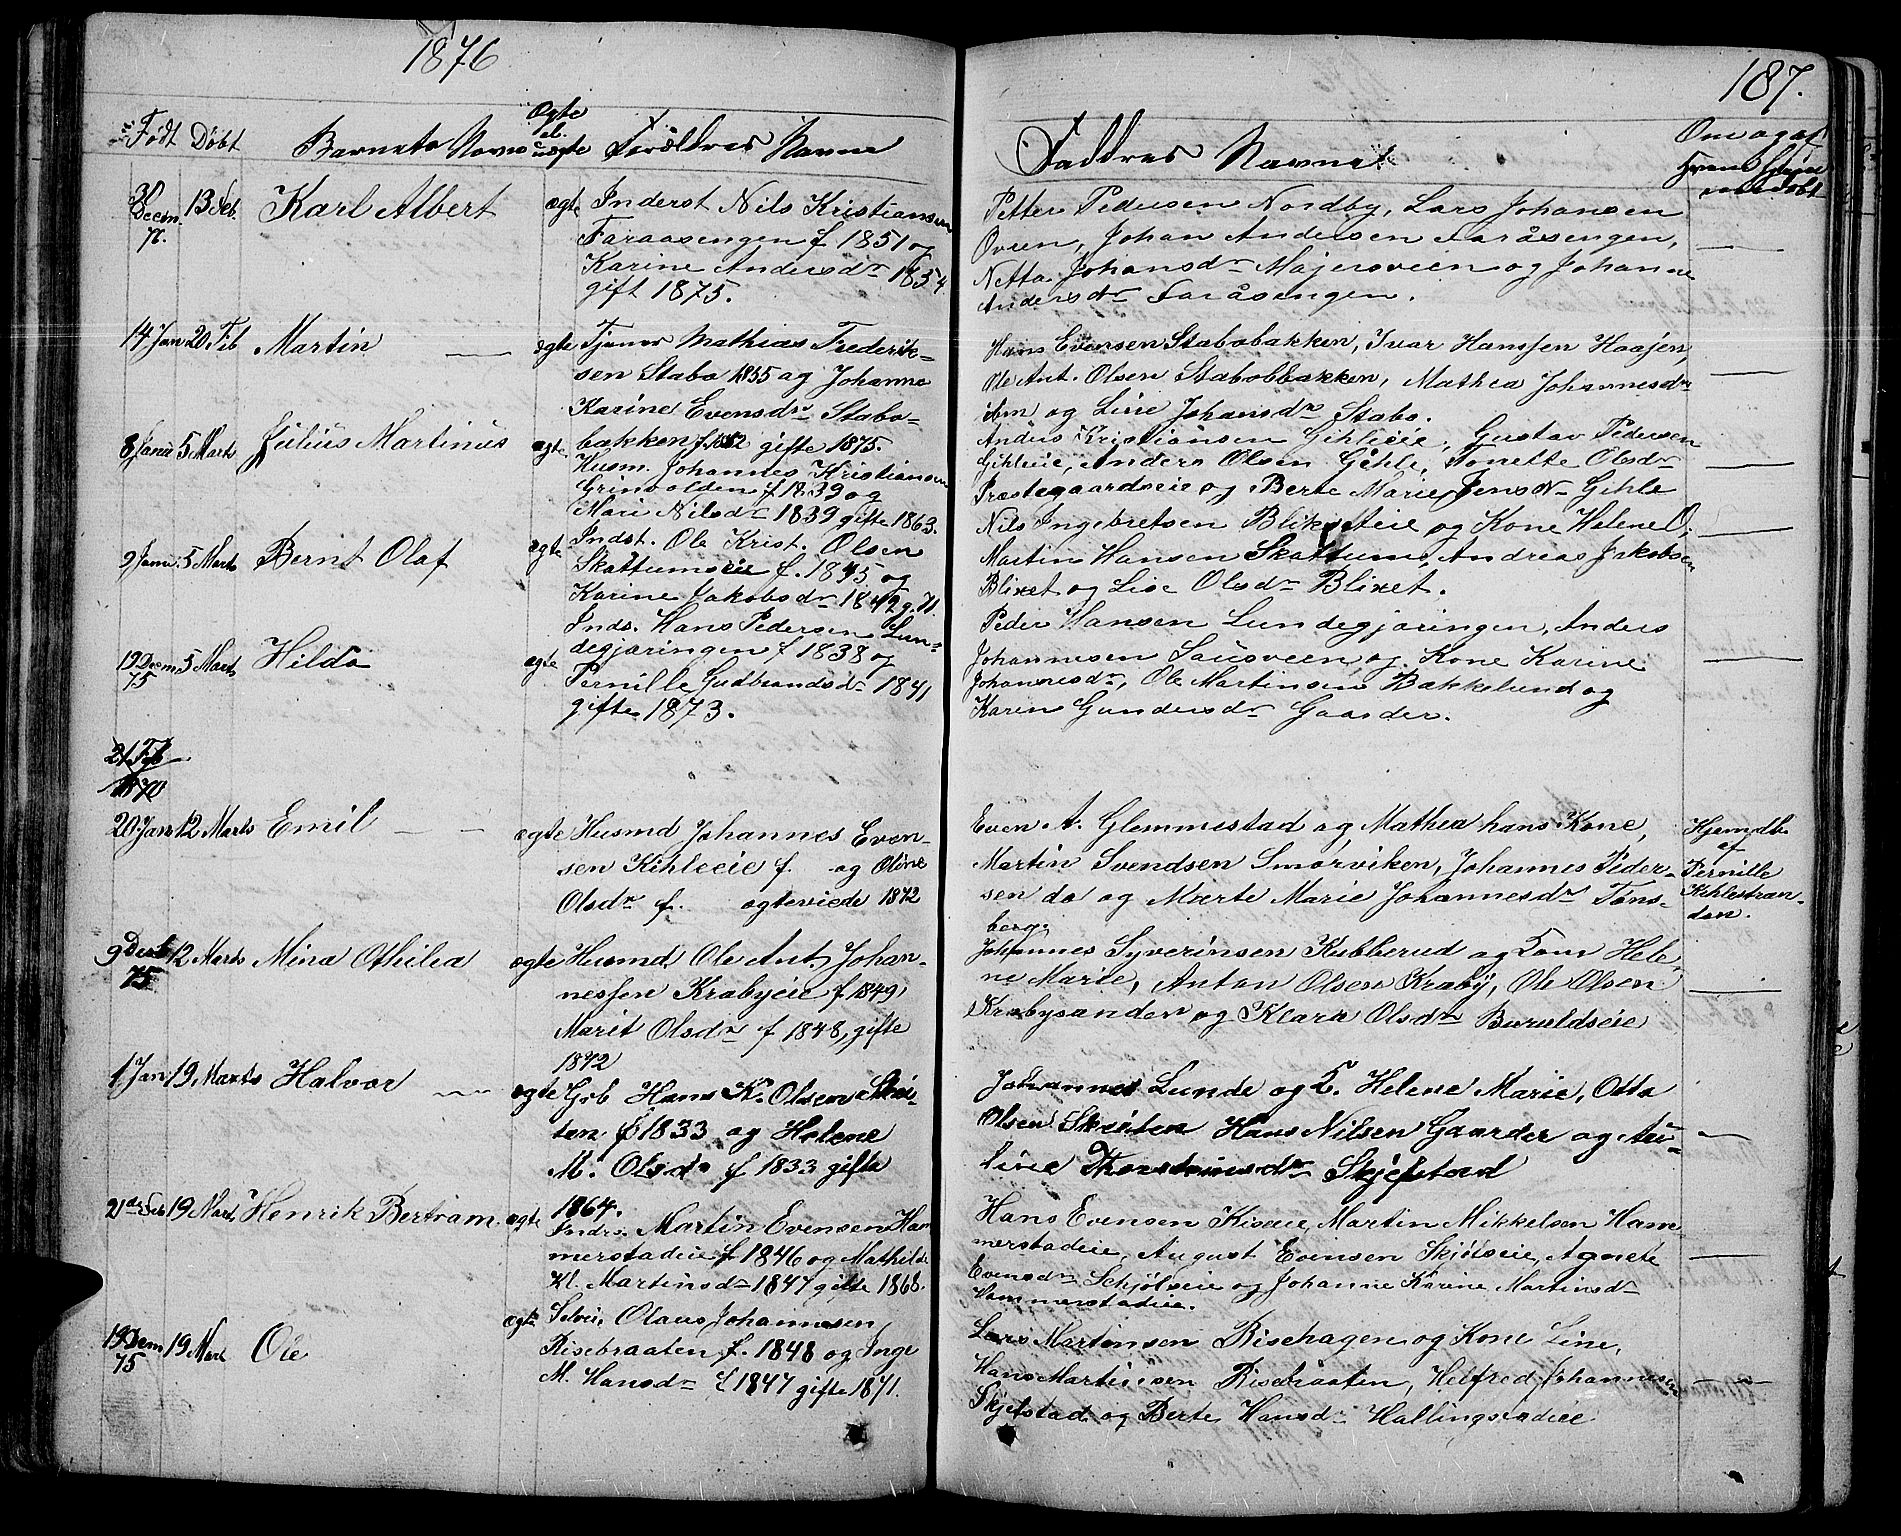 1876
187.
Født Døbt Barnets Navn Ægte el. uægte Forældres Navne
Faddres Navne
Om og af
døbt
13 Feb. Karl Albert ægte Inderst Nils Kristiansen
Faraasengen f 1851 og
Karine Andersdr 1854
gift 1875.
Petter Pedersen Nordby, Lars Johansen
Ovren, Johan Andersen Faråsengen,
Netta Johansdr Majersveen og Johanne
Andersdr Faråsengen.
14 Jan 20 Feb Martin ægte Tjener Mathias Frederik-
sen Stabo 1855 og Johanne
Karine Evensdr Stabo-
bakken f 1852 gifte 1875.
Hans Evensen Stabobakken, Ivar Hanssen Haajen,
Ole Ant. Olsen Stabobakken, Mathea Johannesdr
ibm og Lise Johansdr Stabo.
8 Janu 5 Marts Julius Martinus ægte Husm. Johannes Kristiansen
Grinvolden f 1839 og
Mari Nilsdr 1839 gifte 1863.
Anders Kristiansen Gihleeie, Gustav Pedersen
Gihleeie, Anders Olsen Gihle, Tonette Olsdr
Præstegaardseie og Berte Marie Jensdr Gihle
9 Janu. 5 Marts Bernt Olaf ægte Indst. Ole Krist. Olsen
Skattumseie f. 1845 og
Karine Jakobsdr 1842 g. 71.
Nils Ingebretsen Bliksteie og Kone Helene O,
Martin Hansen Skattum, Andreas Jakobsen
Blixet og Lise Olsdr Blixet.
19 Decm 75 5 Marts Hilda ægte Inds. Hans Pedersen Lun-
degjæringen f 1838 og
Pernille Gudbrandsdr 1841
gifte 1873.
Peder Hansen Lundegjæringen, Anders
Johannesen Sausveen og Kone Karine
Johannesdr, Ole Martinsen Bakkelund og
Karen Gundersdr Gaarder.
21 Feb
1870
20 Jan 12 Marts Emil ægte Husmd Johannes Even-
sen Kihleeie f. og Oline
Olsdr f. ægteviede 1872
Even A. Glemmestad og Mathea hans Kone,
Martin Svendsen Smørviken, Johannes Peder-
sen do og Marte Marie Johannesdr Tøns-
berg.
Hjemdb.
af
Pernille
Kihlestran-
den.
9 Decb 75 12 Marts Mina Othilia ægte Husmd. Ole Ant. Johan-
nessen Krabyeie f 1849,
Marit Olsdr f 1848, gifte
1872
Johannes Syverinsen Kubberud og Kone Hele-
ne Marie, Anton Olsen Kraby, Ole Olsen
Krabysanden og Klara Olsdr Buruldseie
1 Jan 19 Marts Halvor ægte Grb Hans K. Olsen Skrei-
ten f 1833 og Helene
M. Olsdr f 1833 gifte
1864.
Johannes Lunde og K. Helene Marie, Otto
Olsen Skreiten Hans Nilsen Gaarder og Au-
line Thorsteinsdr Skjefstad
21de Feb 19 Marts Henrik Bertram ægte Inds. Martin Evensen Ham
merstadeie f 1846 og Mathilde
Kl. Martinsdr 1847 gifte 1868.
Hans Evensen Kiseie, Martin Mikkelsen Ham
merstadeie, August Evensen Skjølseie, Agnete
Evensdr Schjølseie og Johanne Karine Martinsdr
Hammerstadeie.
19 Decm 75 19 Mart Ole ægte Selvei. Olaus Johannesen
Risebraaten f. 1848 og Inge
M. Hansdr f 1847 gifte 1871.
Lars Martensen Risehagen og Kone Line,
Hans Martinsen Risebraaten, Helfred Johannesen
Skjefstad og Berte Hansdr Hallingstadeie